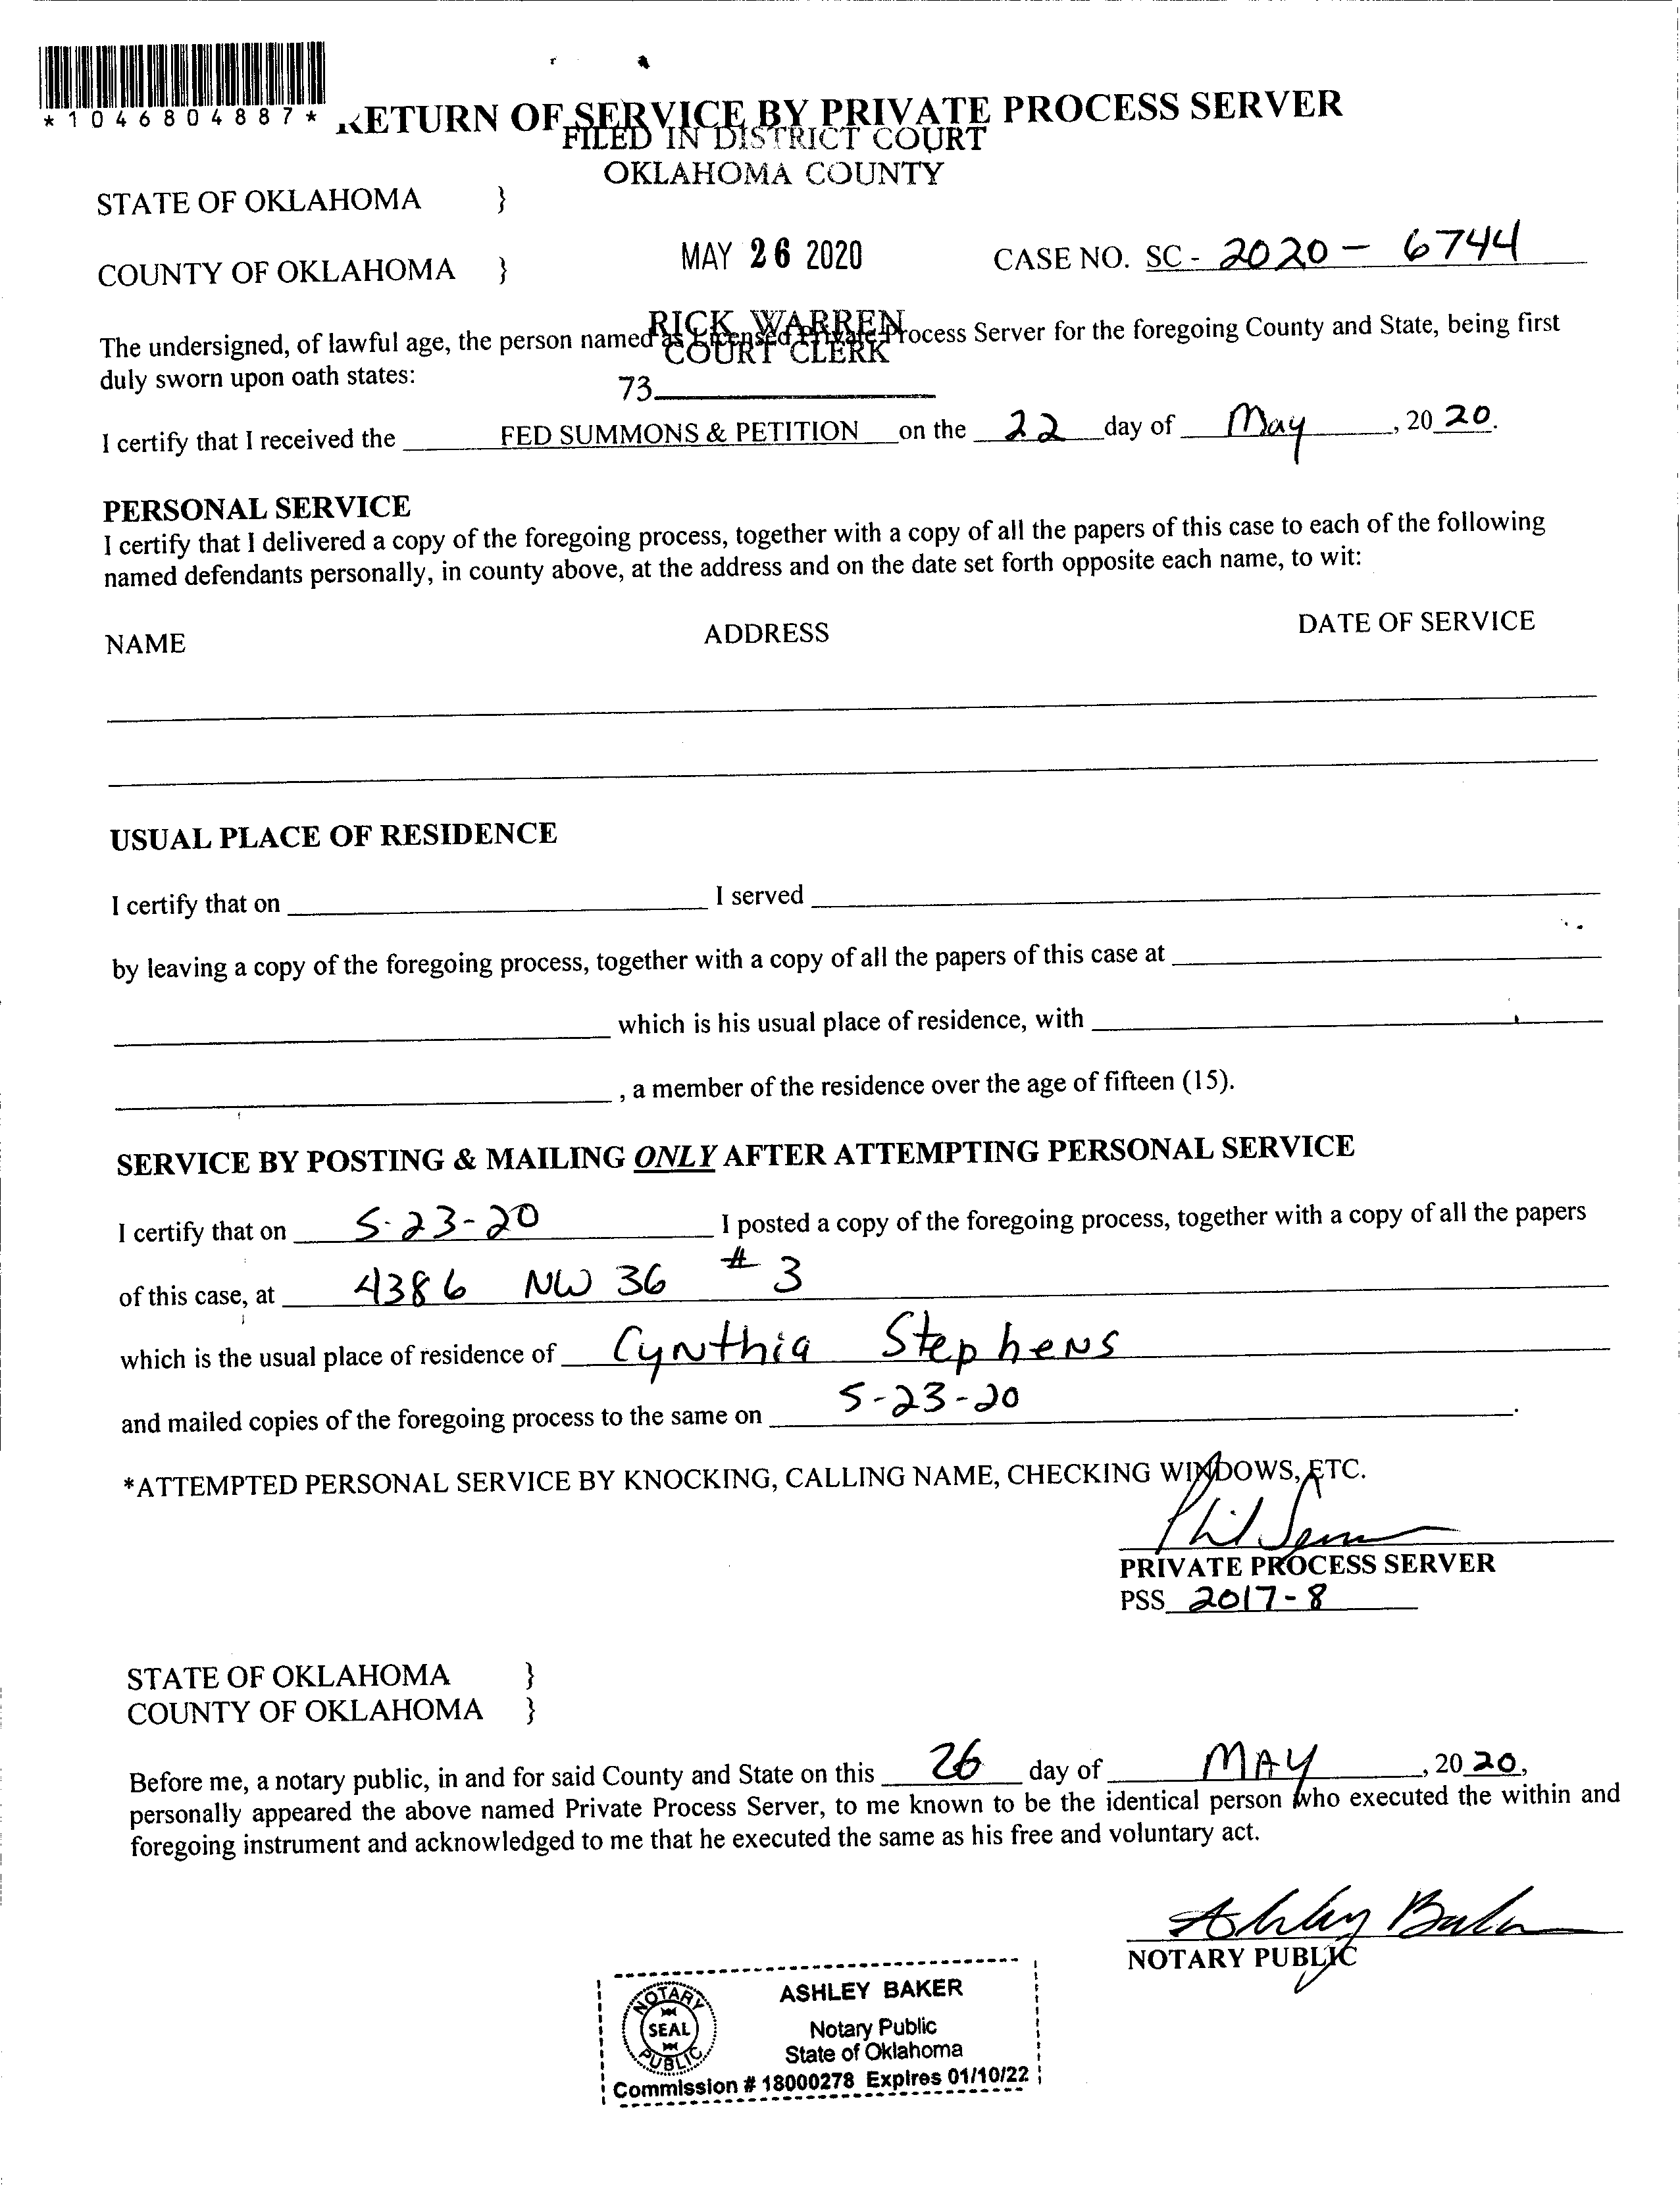 *1046804887*
RETURN OF SERVICE BY PRIVATE PROCESS SERVER
FILED IN DISTRICT COURT
OKLAHOMA COUNTY
STATE OF OKLAHOMA }
MAY 26 2020 CASE NO. SC - 2020 - 6744
COUNTY OF OKLAHOMA }
RICK WARREN
COURT CLERK
The undersigned, of lawful age, the person named as Licensed Private Process Server for the foregoing County and State, being first
duly sworn upon oath states:
73
I certify that I received the FED SUMMONS & PETITION on the 22 day of May, 20 20.
PERSONAL SERVICE
I certify that I delivered a copy of the foregoing process, together with a copy of all the papers of this case to each of the following
named defendants personally, in county above, at the address and on the date set forth opposite each name, to wit:
NAME ADDRESS DATE OF SERVICE
USUAL PLACE OF RESIDENCE
I certify that on I served
by leaving a copy of the foregoing process, together with a copy of all the papers of this case at
which is his usual place of residence, with
, a member of the residence over the age of fifteen (15).
SERVICE BY POSTING & MAILING ONLY AFTER ATTEMPTING PERSONAL SERVICE
I certify that on 5-23-20 I posted a copy of the foregoing process, together with a copy of all the papers
of this case, at 4386 NW 36 # 3
which is the usual place of residence of Cynthia Stephens
and mailed copies of the foregoing process to the same on 5-23-20.
*ATTEMPTED PERSONAL SERVICE BY KNOCKING, CALLING NAME, CHECKING WINDOWS, ETC.
Phil
PRIVATE PROCESS SERVER
PSS 2017-8
STATE OF OKLAHOMA }
COUNTY OF OKLAHOMA }
Before me, a notary public, in and for said County and State on this 26 day of MAY, 20 20,
personally appeared the above named Private Process Server, to me known to be the identical person who executed the within and
foregoing instrument and acknowledged to me that he executed the same as his free and voluntary act.
Ashley Baker
NOTARY PUBLIC
NOTARY PUBLIC SEAL
ASHLEY BAKER
Notary Public
State of Oklahoma
Commission # 18000278 Expires 01/10/22